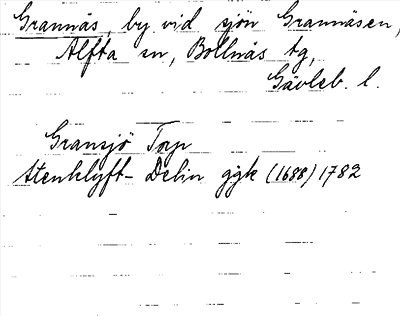 Grannäs, by vid sjön Grannäsen,
Alfta sn, Bollnäs tg,
Gävleb. l.
Gransjö Torp
Stenklyft- Delin ggk (1688) 1782